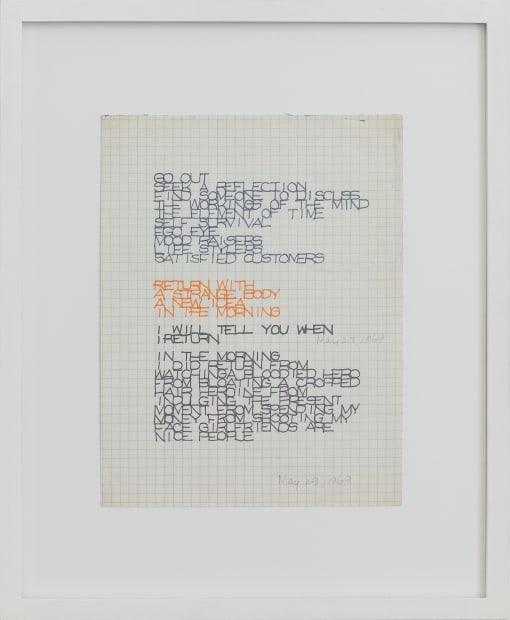 GO OUT
SEEK A REFLECTION
FIND SOMEONE TO DISCUSS
THE WORKINGS OF THE MIND
THE ELEMENT OF TIME
SELF SURVIVAL
EGO EYE
MOOD RAISERS
LIFE STYLERS
SATISFIED CUSTOMERS
RETURN WITH
A STRANGE BODY
A NEW IDEA
IN THE MORNING
I WILL TELL YOU WHEN
I RETURN
May 29, 1969
IN THE MORNING
I DID RETURN FROM
WATCHING A BLOODIED HERO
FROM BLOATING A CROPPED
HAIR HEROINE FROM
INDULGING THE PRESENT
MOMENT FROM SPENDING MY
MONEY FROM SHOOTING MY
FACE GIRLFRIENDS ARE
NICE PEOPLE
May 29, 1969